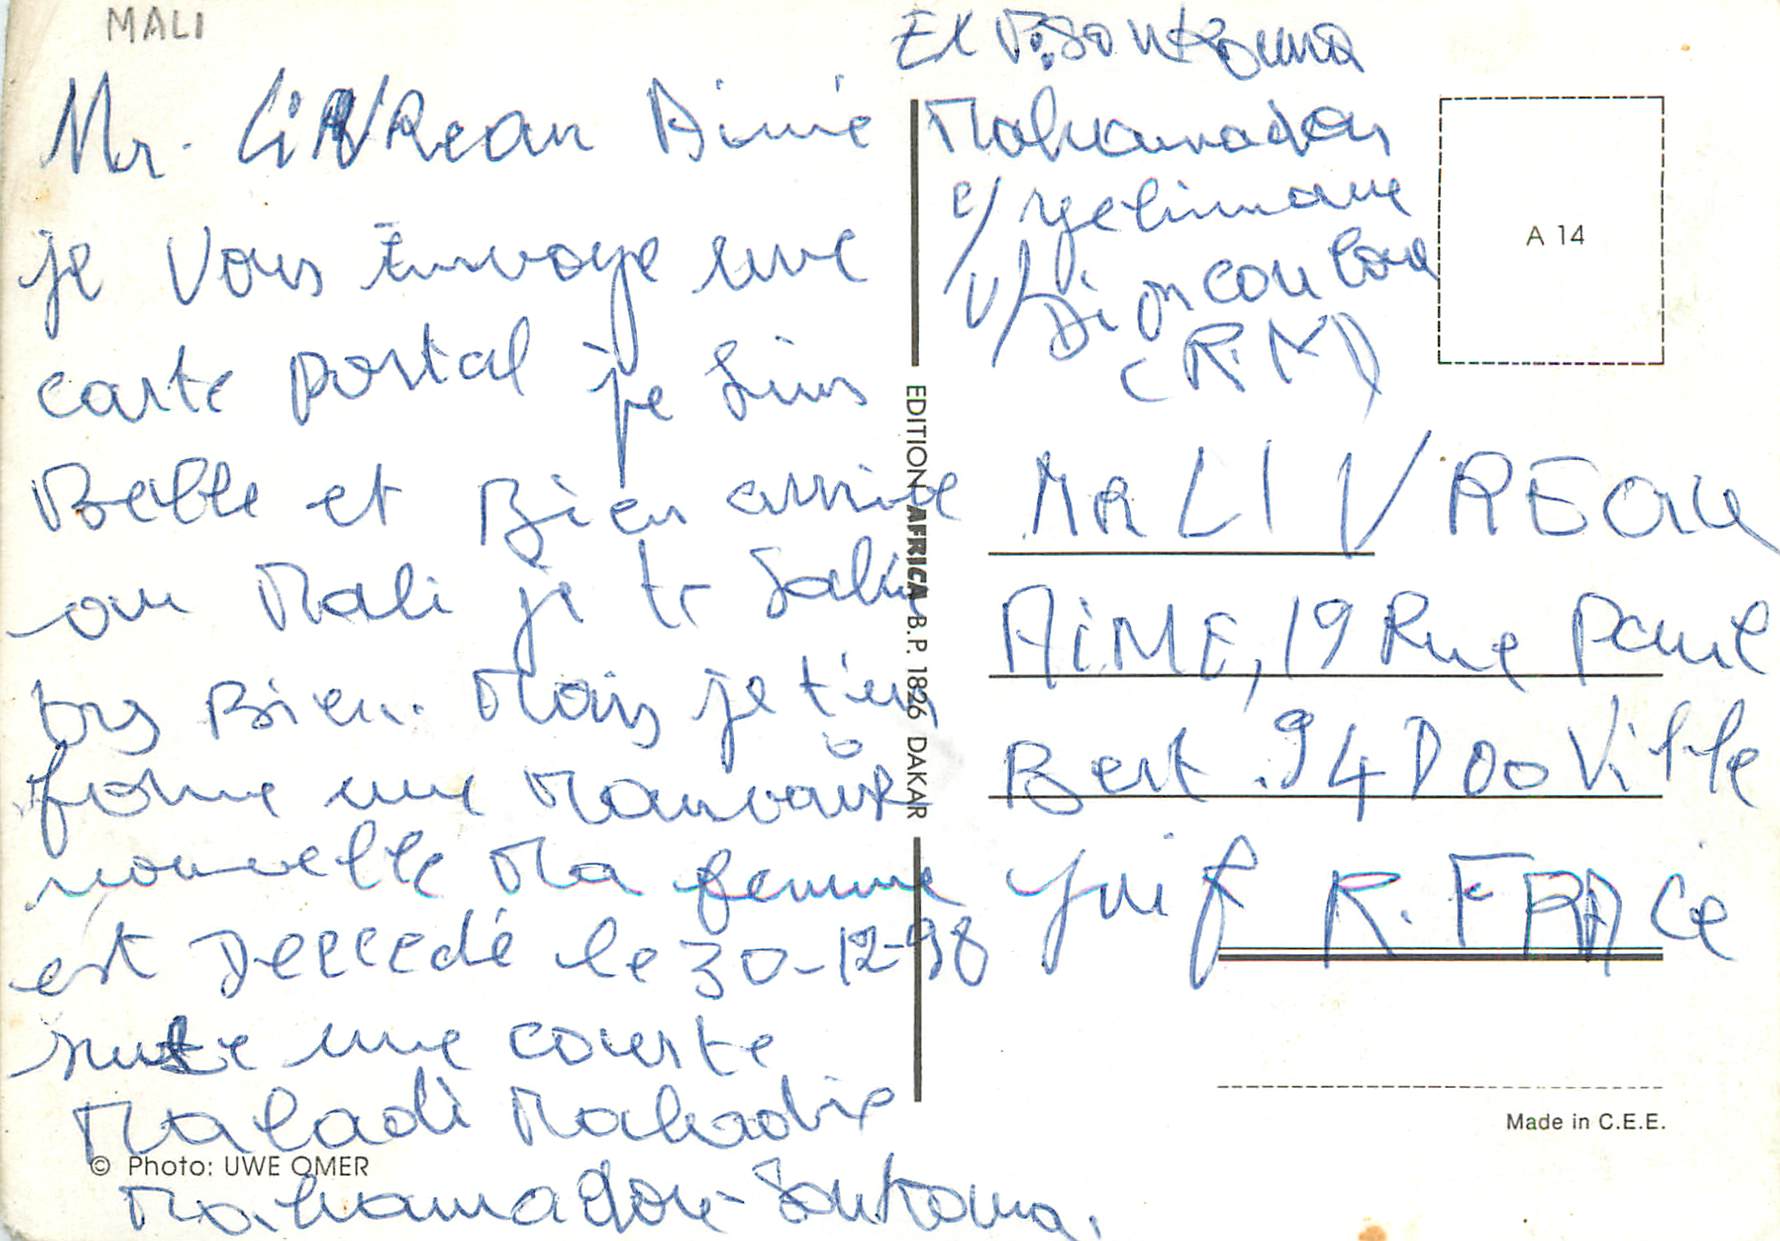 MALI
Mr. LiVReau Aimé
je vous Envoye une
carte postal je suis
Belle et Bien arrive
au Mali je te salue
trs Bien. Mais je t'in
forme une Mauvaise
nouvelle Ma femme
est Deccedé le 30-12-98
suite une courte
Maladi
Mahamadou Soukouna.
© Photo: UWE OMER
EDITION AFRICA B.P. 1826 DAKAR
EX Soukouna
Mahamadou
c/ yelimane
v/ Dioncoulane
(R.M)
A 14
MR LIVREau
AiME, 19 Rue Paul
Bert . 94D00 Ville
juif R. FRANCe
Made in C.E.E.